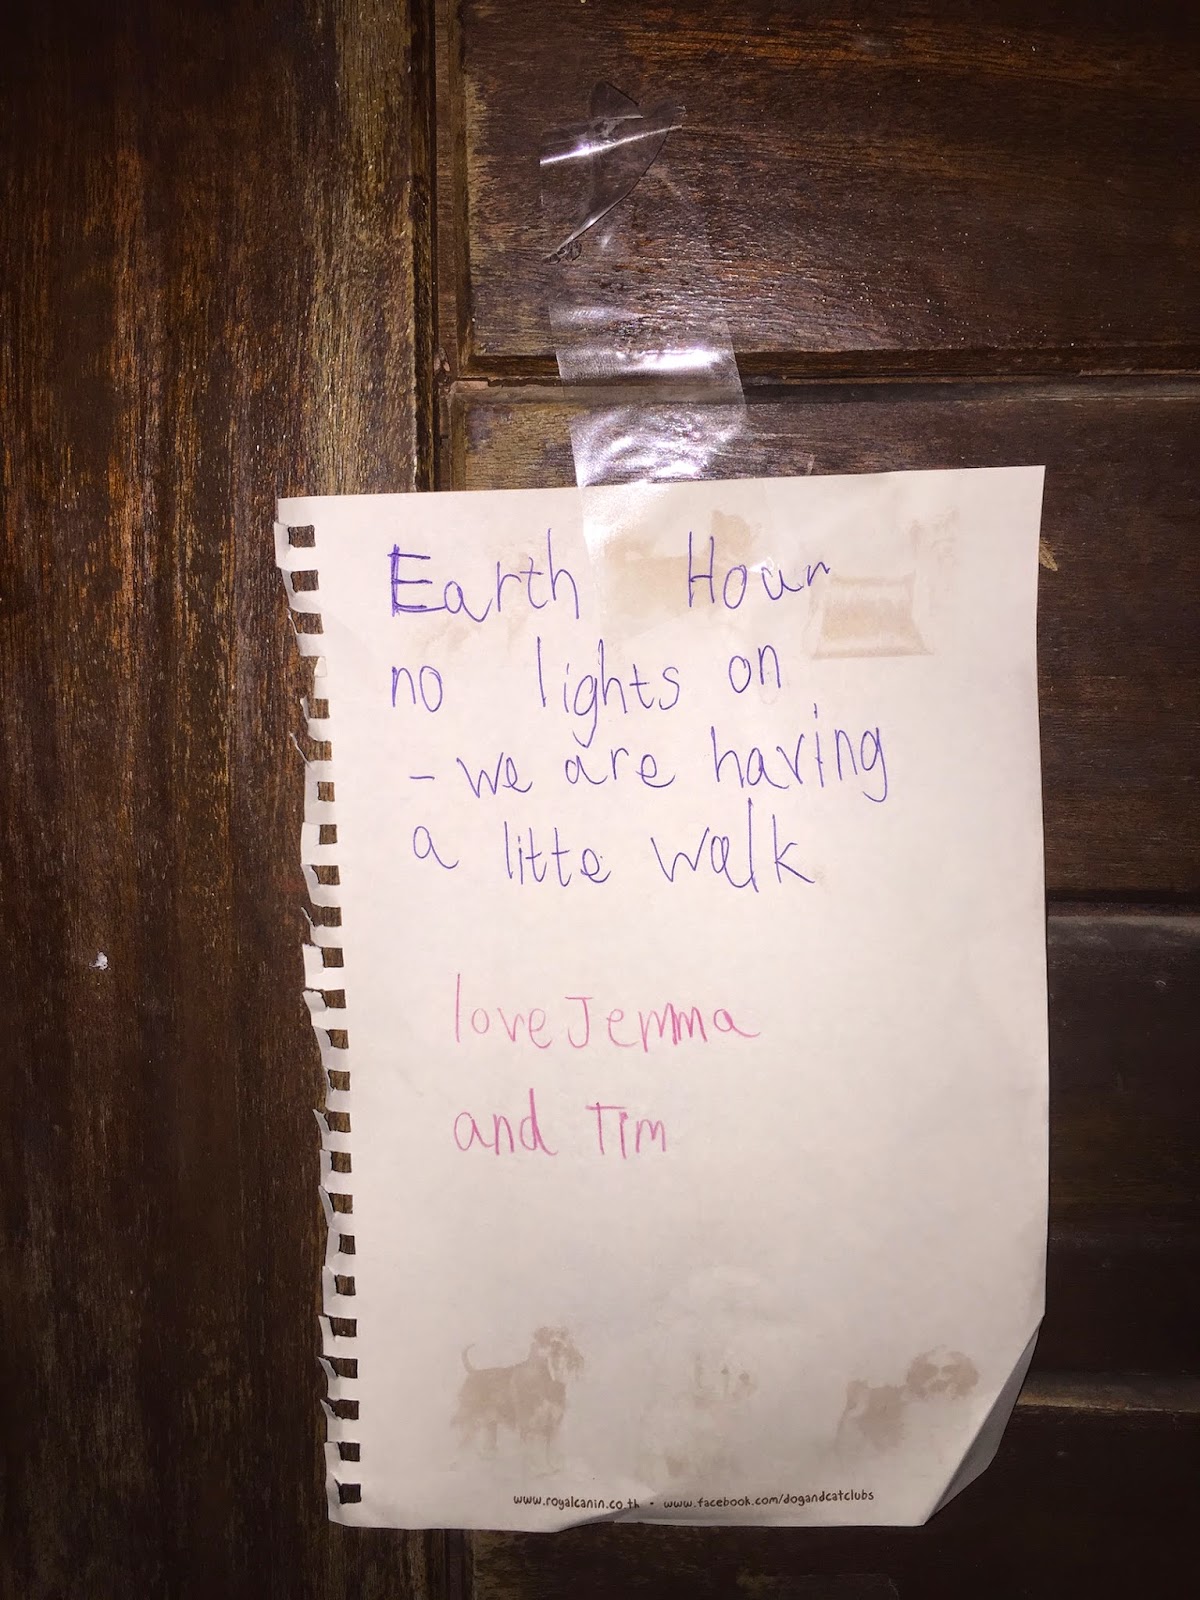 Earth Hour
no lights on
- we are having
a litte walk
love Jemma
and Tim
www.royalcanin.co.th - www.facebook.com/dogandcatclubs